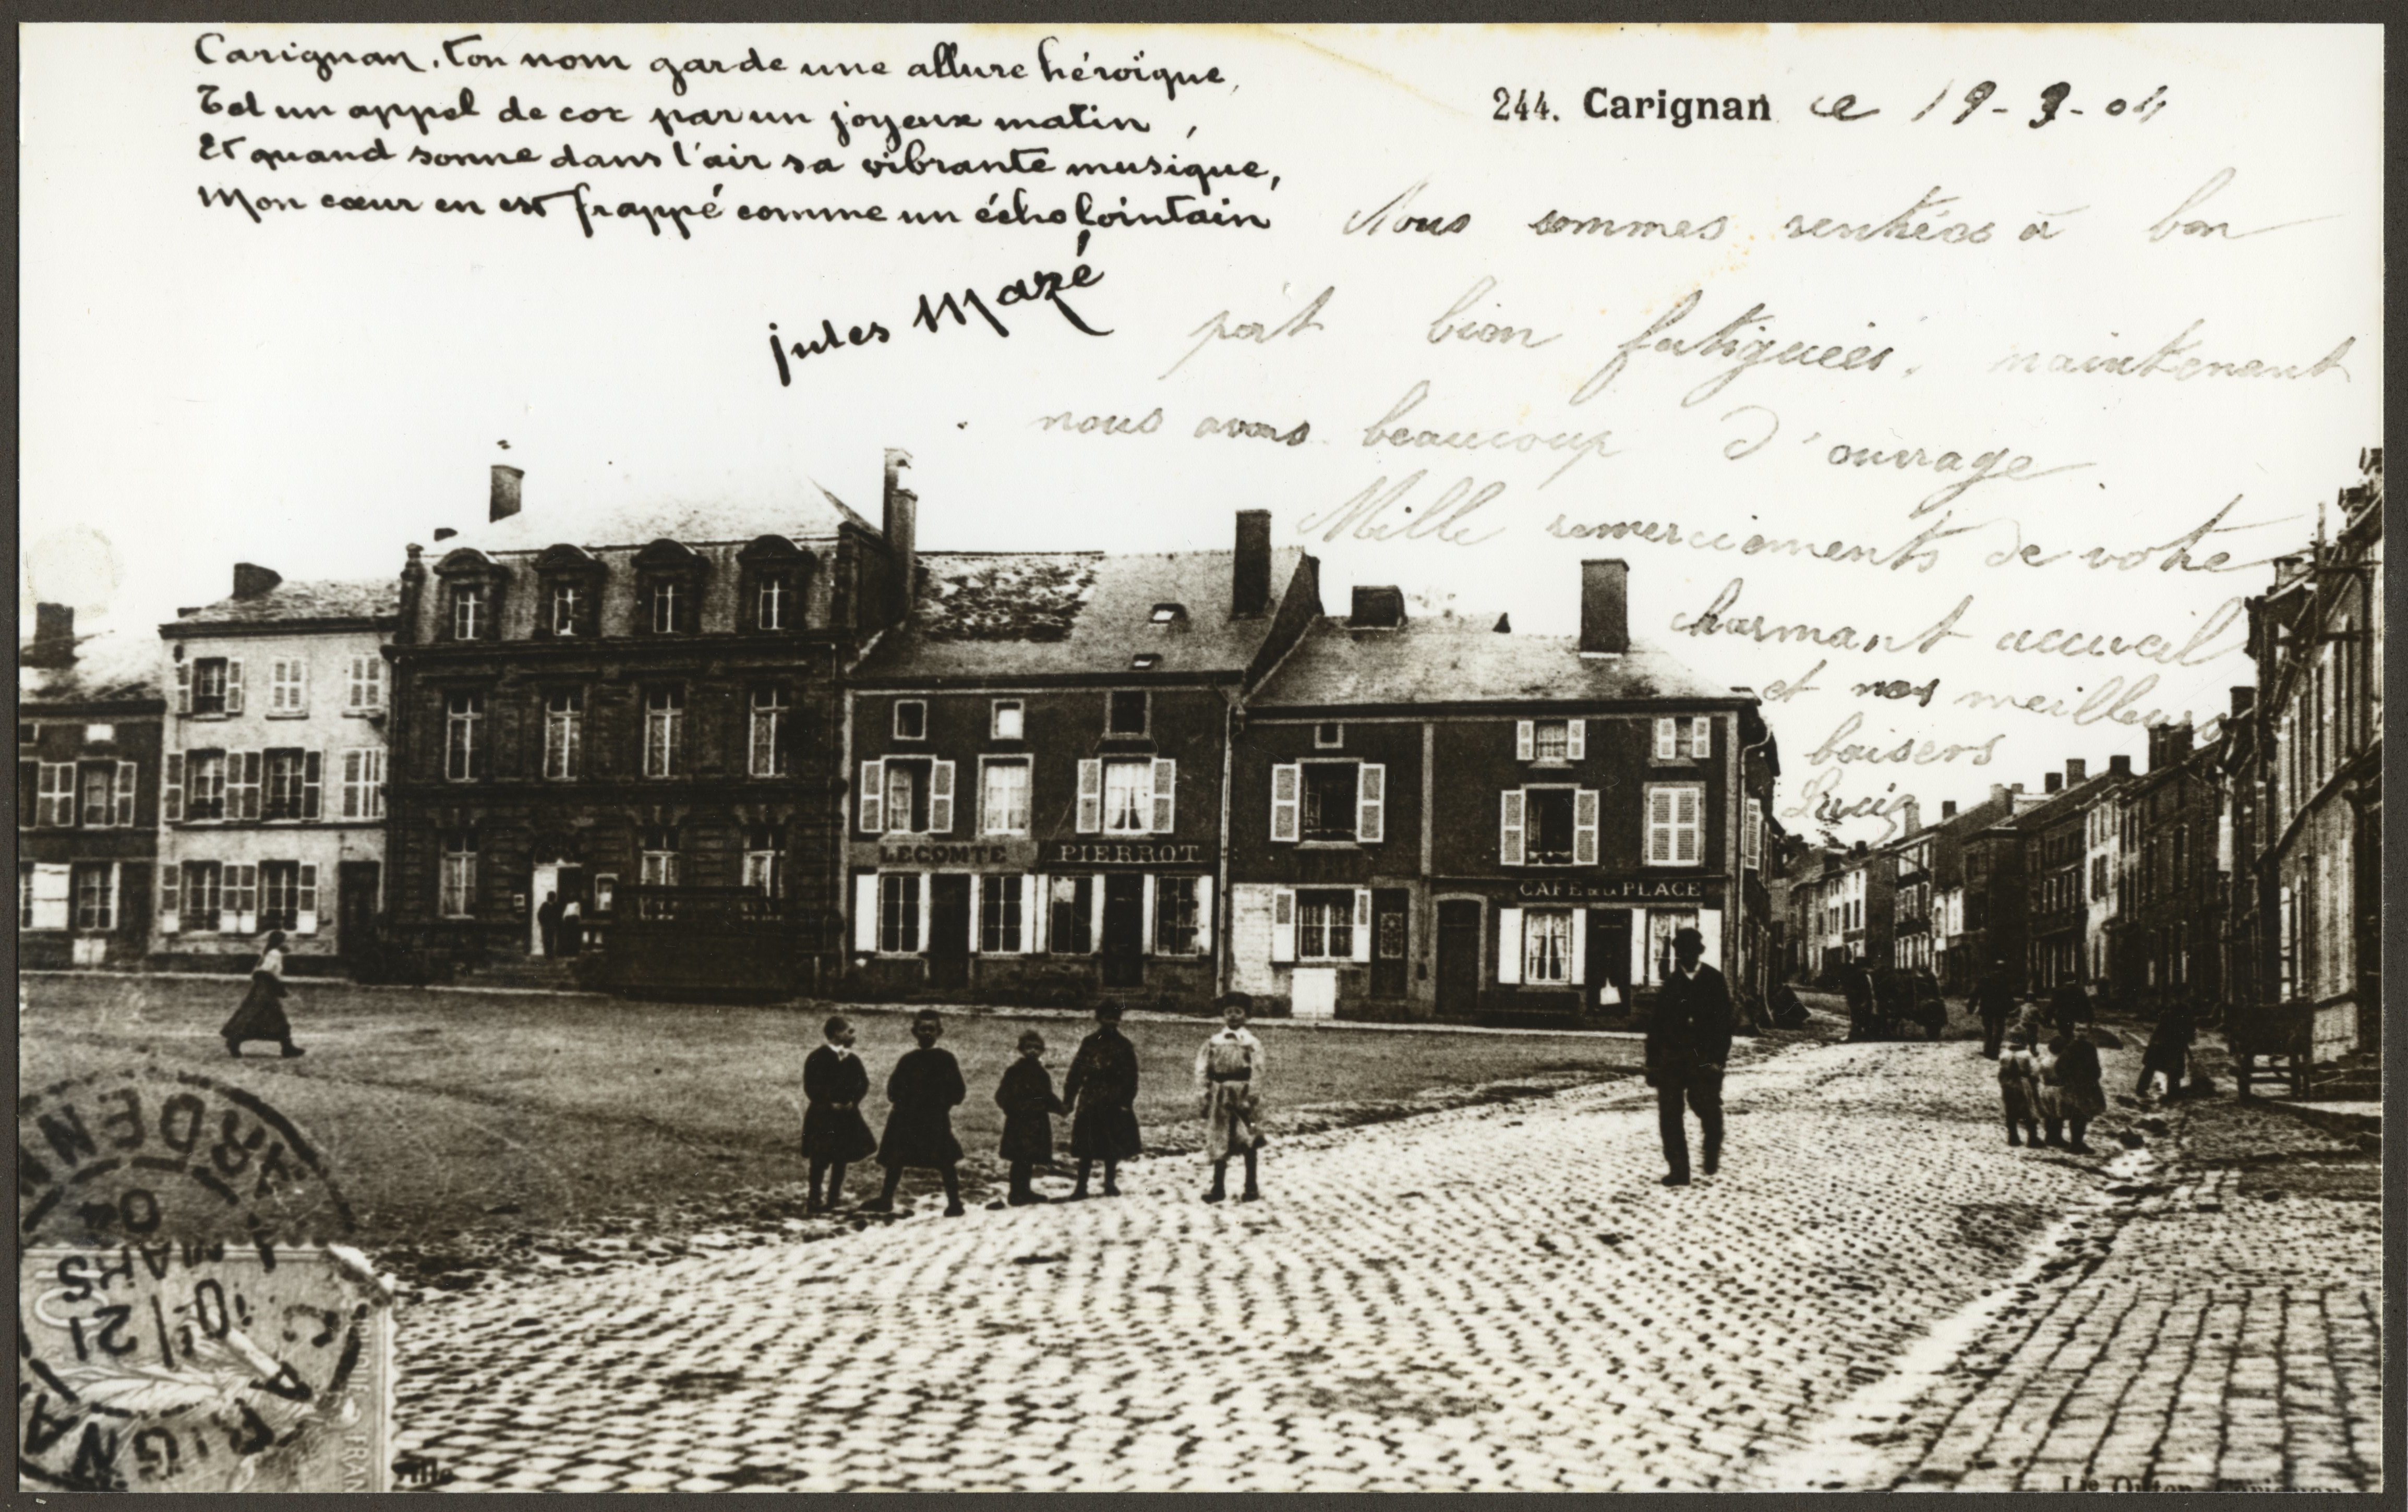 Carignan, ton nom garde une allure héroïque,
Tel un appel de cor par un joyeux matin,
Et quand sonne dans l'air sa vibrante musique,
Mon cœur en est frappé comme un écho lointain
Jules Mazé
244. Carignan le 19-3-04
Nous sommes rentrées à bon
port bien fatiguées. maintenant
nous avons beaucoup d'ouvrage
Mille remerciements de votre
charmant accueil
et nos meilleurs
baisers
Lucie
LECOMTE
PIERROT
CAFE DE LA PLACE
CARIGNAN
ARDENN
10/21
MARS
04
FRAN